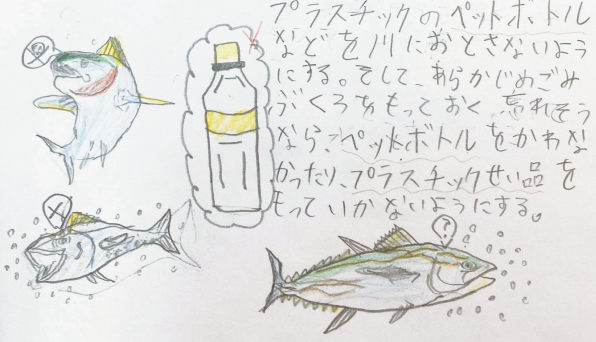 プラスチックのペットボトル
などを川におとさないよう
にする。そして、あらかじめごみ
ぶくろをもっておく、忘れそう
なら、ペットボトルをかわな
かったり、プラスチックせい品を
もっていかないようにする。
?